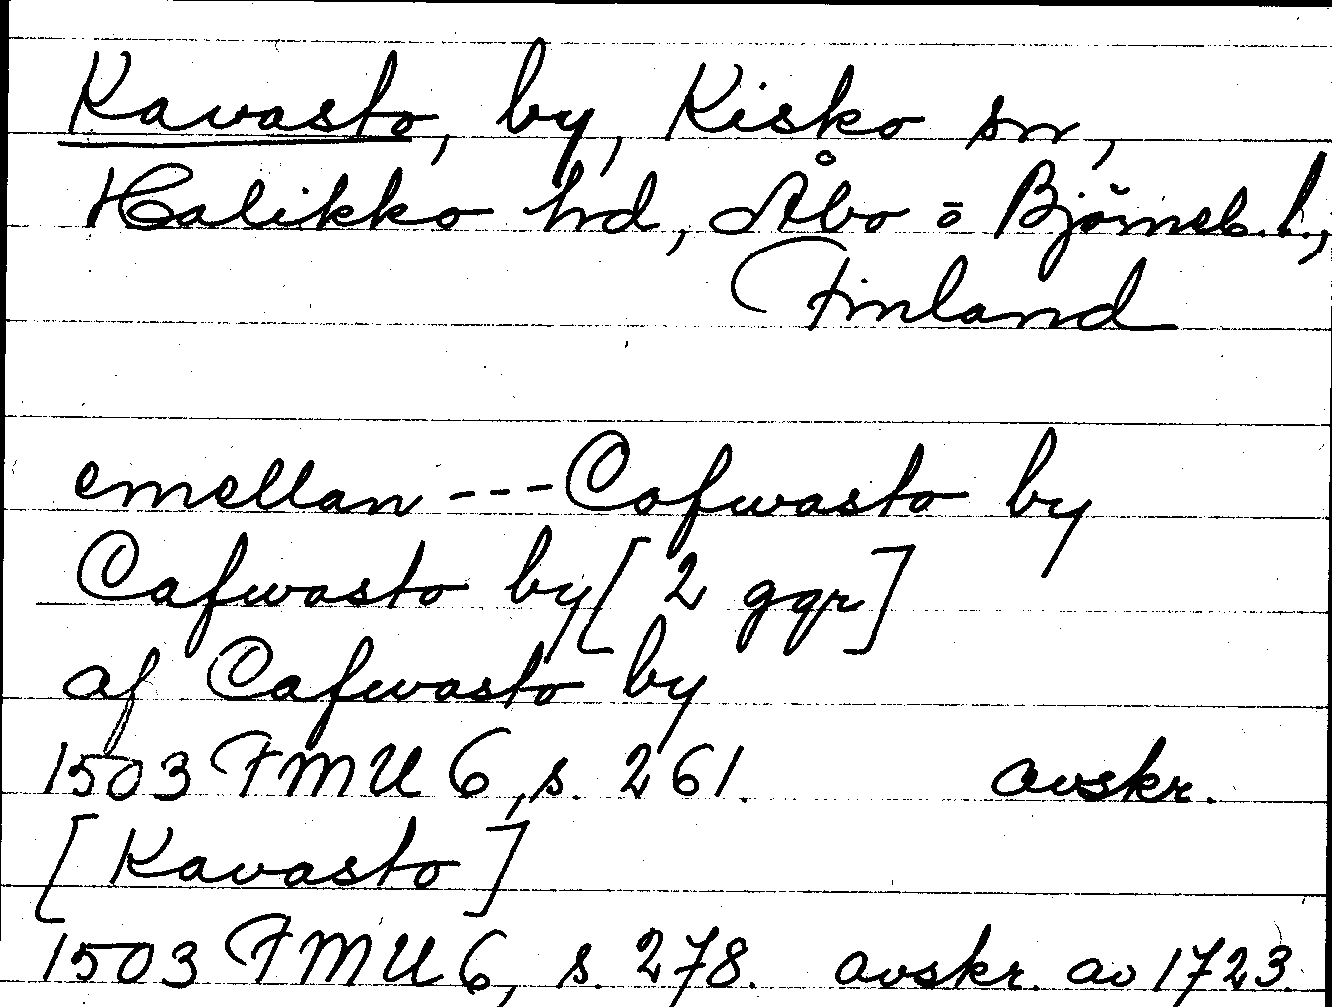 Kavasto, by, Kisko sn,
Halikko hd, Åbo o Björneb. l.,
Finland
emellan --- Cafwasto by
Cafwasto by [2 ggr]
af Cafwasto by
1503 FMU 6, s. 261. avskr.
[Kavasto]
1503 FMU 6, s. 278. avskr. av 1723.